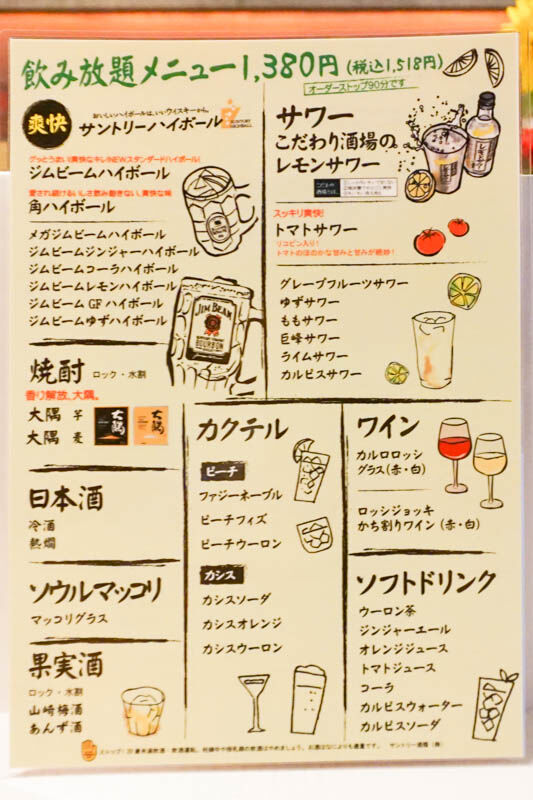 飲み放題メニュー1,380円(税込1,518円)
オーダーストップ90分です
爽快
おいしいハイボールは、いいウイスキーから。
サントリーハイボール
SUNTORY HIGHBALL
ジムビームハイボール
角ハイボール
メガジムビームハイボール
ジムビームジンジャーハイボール
ジムビームコーラハイボール
ジムビームレモンハイボール
ジムビーム GF ハイボール
ジムビームゆずハイボール
JIM BEAM
BOURBON
サワー
こだわり酒場の
レモンサワー
スッキリ爽快!
トマトサワー
リコピン入り!
トマトのほのかな甘みと甘みが絶妙!
グレープフルーツサワー
ゆずサワー
ももサワー
巨峰サワー
ライムサワー
カルピスサワー
焼酎 ロック・水割
香り解放、大隅。
大隅 芋
大隅 麦
大隅
日本酒
冷酒
熱燗
ソウルマッコリ
マッコリグラス
果実酒
ロック・水割
山崎梅酒
あんず酒
カクテル
ピーチ
ファジーネーブル
ピーチフィズ
ピーチウーロン
カシス
カシスソーダ
カシスオレンジ
カシスウーロン
ワイン
カルロロッシ
グラス(赤・白)
ロッシジョッキ
かち割りワイン(赤・白)
ソフトドリンク
ウーロン茶
ジンジャーエール
オレンジジュース
トマトジュース
コーラ
カルピスウォーター
カルピスソーダ
ストップ!20歳未満飲酒・飲酒運転。妊娠中や授乳期の飲酒はやめましょう。お酒はなによりも適量です。 サントリー酒類(株)